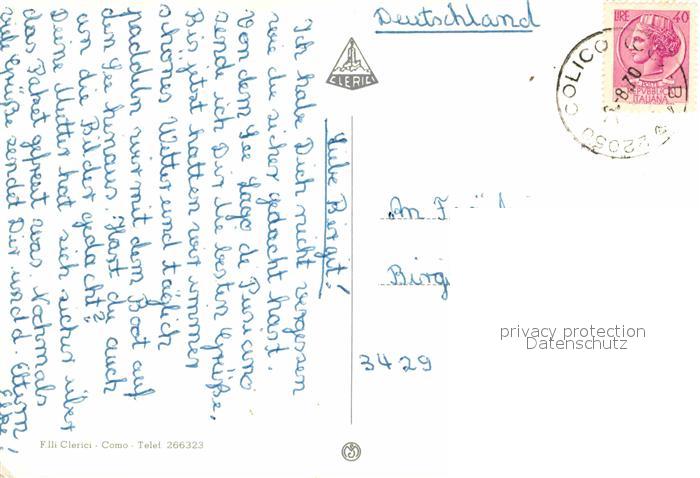 Deutschland
LIRE 40
POSTE
REPUBBLICA
ITALIANA
COLICO
-8.70
22050
CLERICI
Liebe Birgit!
Ich habe Dich nicht vergessen
wie du sicher gedacht hast.
Von dem See Lago de Pusiano
sende ich Dir die besten Grüße.
Bis jetzt hatten wir immer
schönes Wetter und täglich
paddeln wir mit dem Boot auf
den See hinaus. Hast du auch
an die Bilder gedacht?
Deine Mutter hat sich sicher über
das Paket gefreut was. Nochmals
viele Grüße sendet Dir und d. Eltern
An
Birg
3429
privacy protection
Datenschutz
F.lli Clerici - Como - Telef. 266323